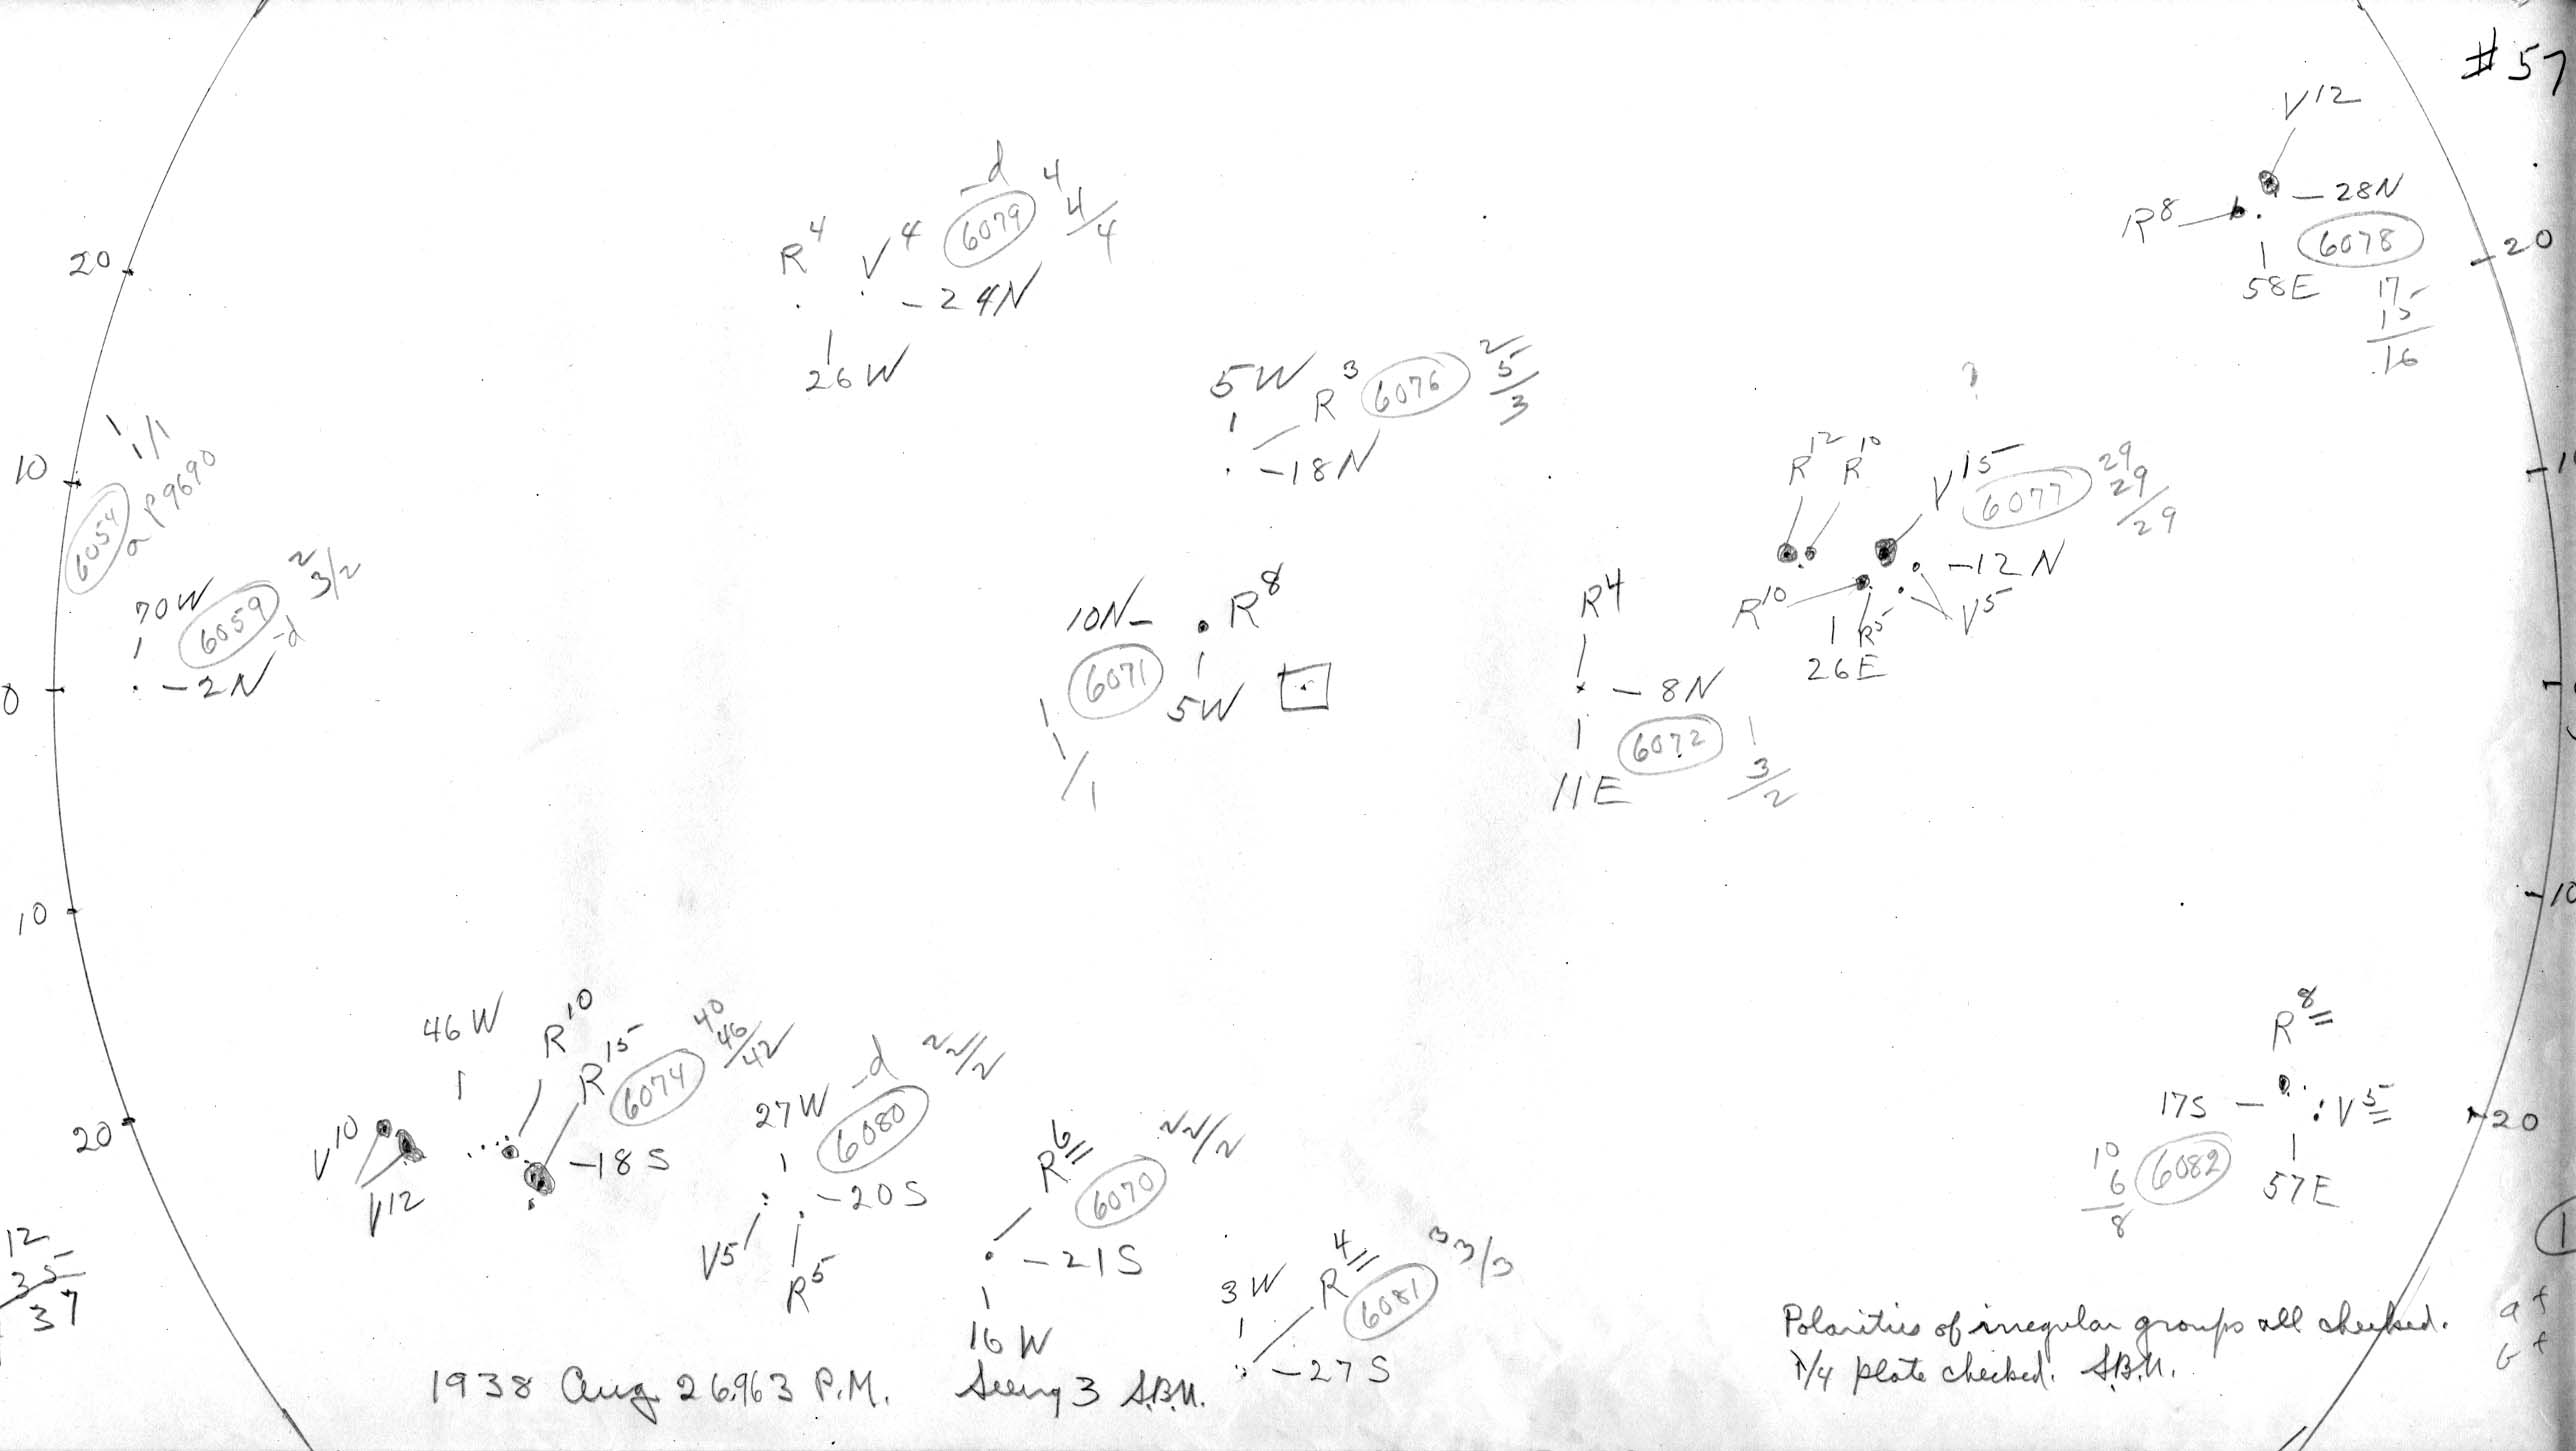 #57
V12
-28N
R8
6078
58E
17
15
16
20
20
-d
6079
4
4/4
R4
V4
-24N
26W
5W
R3
6076
2
5/3
-18N
10
1
1/1
a p9690
70W
6059
-d
2
3/2
-2N
0
?
R12
R10
V15
6077
29
29/29
R10
-12N
V5
R5
26E
10N-
R8
6071
5W
1
1/1
R4
-8N
11E
6072
1
3/2
10
-10
46W
R10
R15
6074
40
46/42
V10
V12
-18S
20
27W
-d
6080
2 2/2
-20S
V5
R5
R6
6070
2 2/2
-21S
16W
3W
R4
6081
3 3/3
-27S
R8
17S -
V5
57E
10
6
8
6082
20
12
35
37
Polarities of irregular groups all checked.
1/4 plate checked. S.B.N.
1938 Aug 26.963 P.M. Seeing 3 S.B.N.